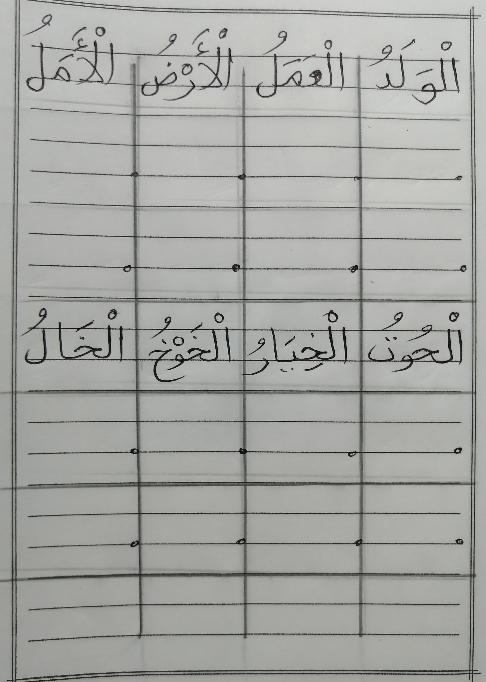 الْوَلَدُ الْعَمَلُ الْأَرْضُ الْأَمَلُ
الْحُوتُ الْخِيَارُ الْخَوْخُ الْخَالُ